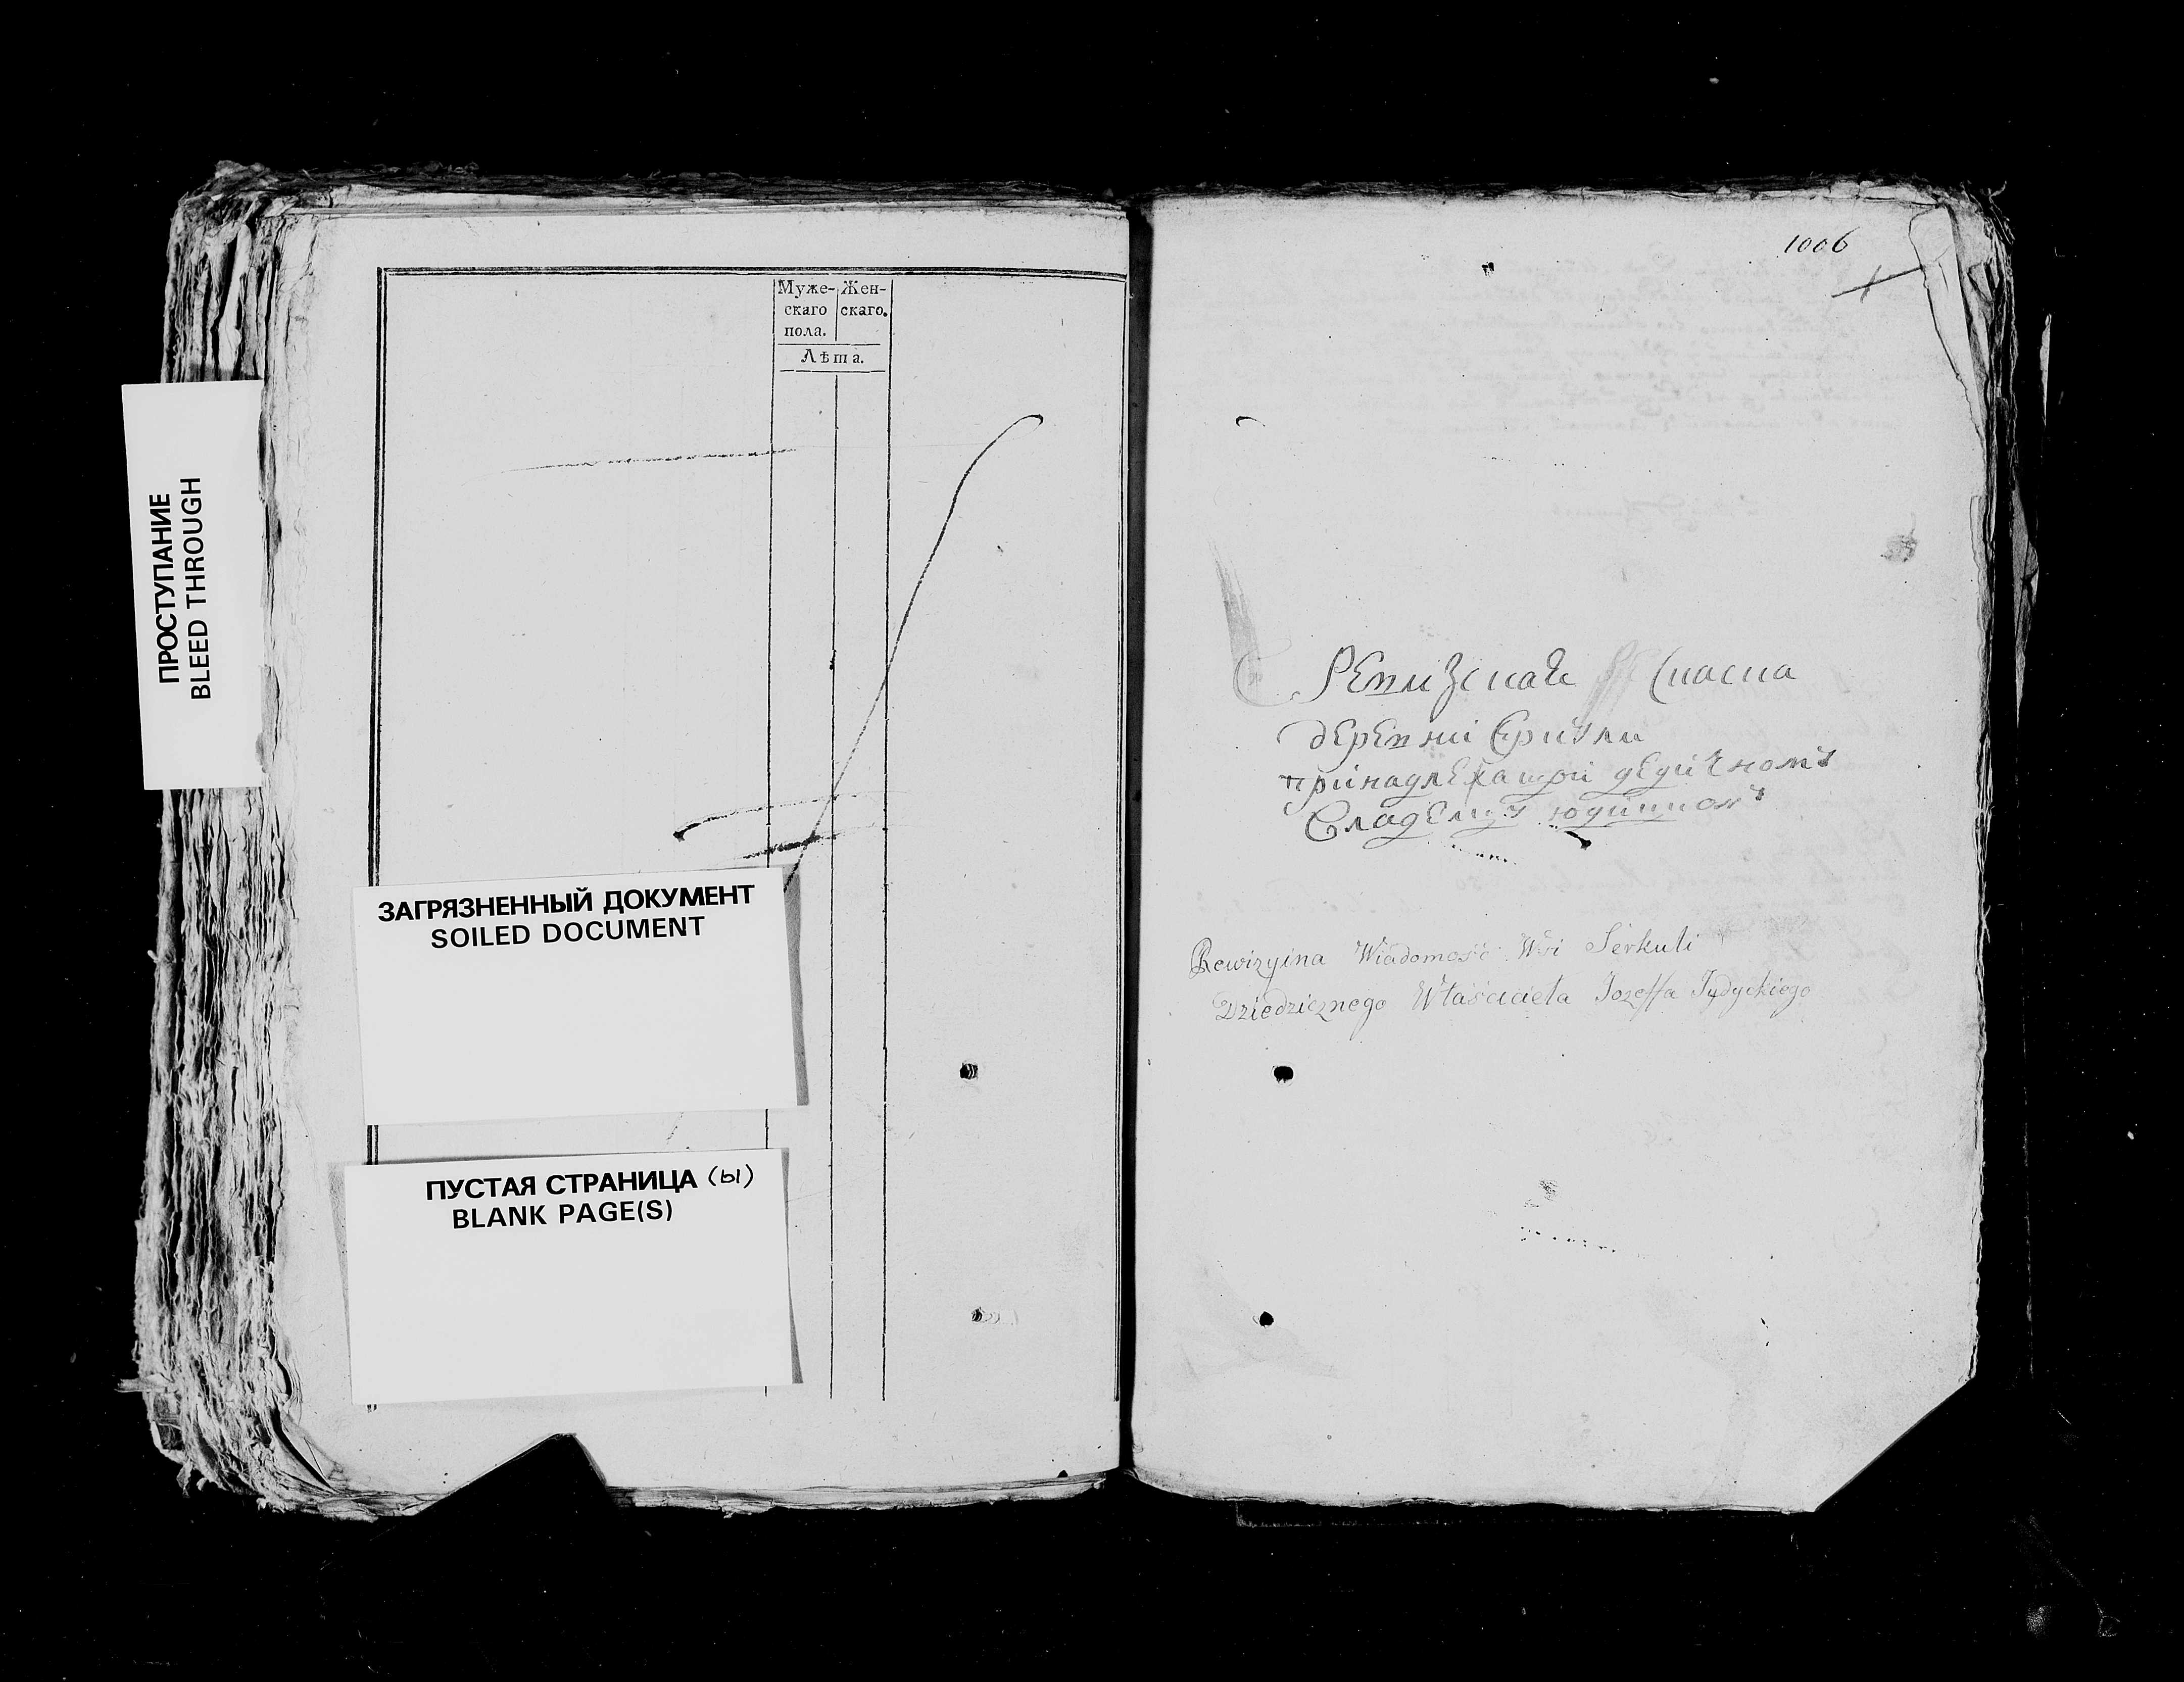 ПРОСТУПАНИЕ
BLEED THROUGH
Муже-
скаго
пола.
Жен-
скаго.
Лѣта.
ЗАГРЯЗНЕННЫЙ ДОКУМЕНТ
SOILED DOCUMENT
ПУСТАЯ СТРАНИЦА (ы)
BLANK PAGE(S)
1006
Ревизская
деревни
принадлежащой
Rewizyina Wiadomość Wsi Serkuli
Dziedzicznego Właściciela Jozeffa Judyckiego